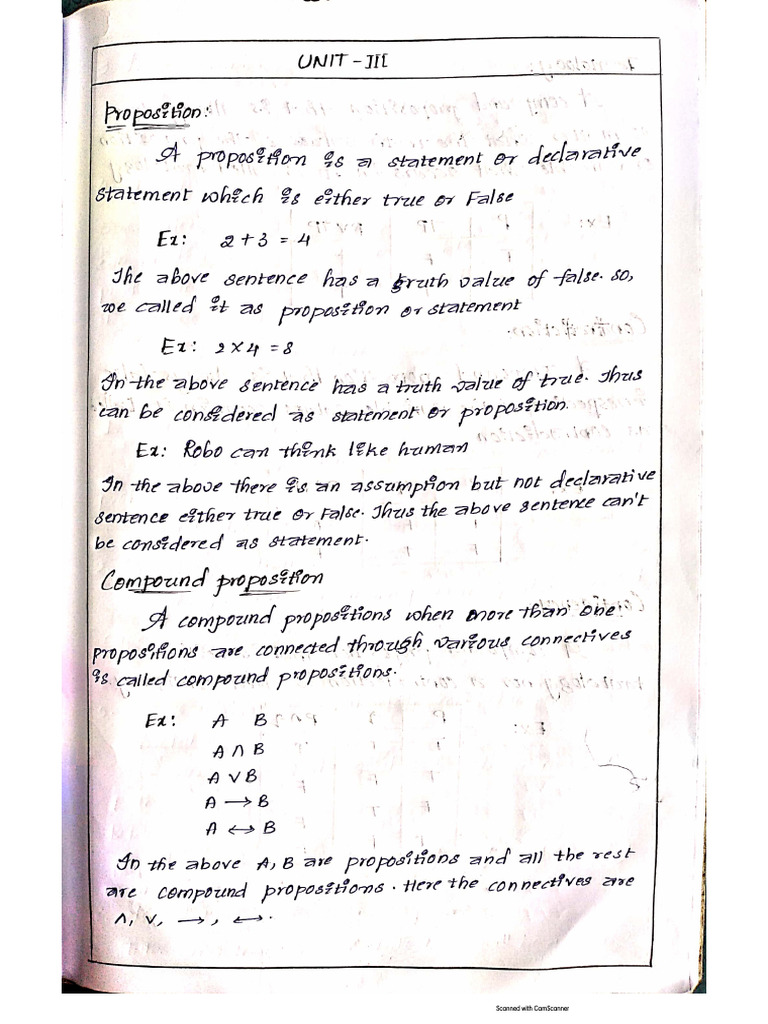 UNIT - III
Proposition:
A proposition is a statement or declarative
statement which is either true or False
Ex: 2 + 3 = 4
The above sentence has a truth value of false. so,
we called it as proposition or statement
Ex: 2 × 4 = 8
In the above sentence has a truth value of true. Thus
can be considered as statement or proposition.
Ex: Robo can think like human
In the above there is an assumption but not declarative
sentence either true or False. Thus the above sentence can't
be considered as statement.
Compound proposition
A compound propositions when more than one
propositions are connected through various connectives
is called compound propositions.
Ex: A B
A ∧ B
A ∨ B
A → B
A ↔ B
In the above A, B are propositions and all the rest
are compound propositions. Here the connectives are
∧, ∨, →, ↔.
Scanned with CamScanner